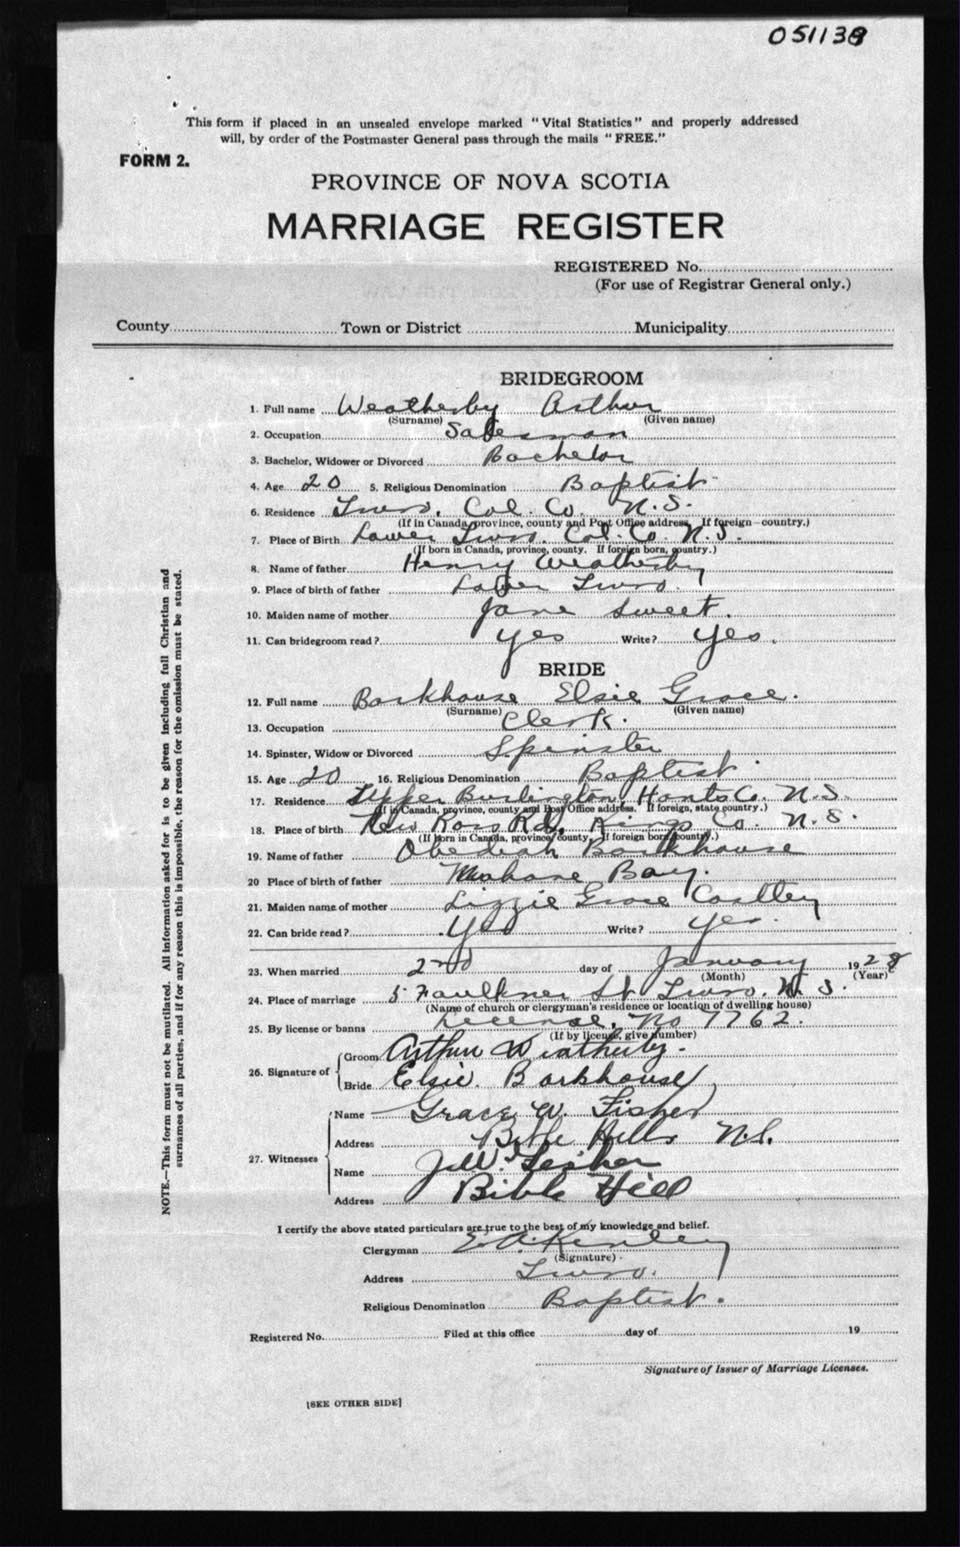 051139
This form if placed in an unsealed envelope marked "Vital Statistics" and properly addressed
will, by order of the Postmaster General pass through the mails "FREE."
FORM 2.
PROVINCE OF NOVA SCOTIA
MARRIAGE REGISTER
REGISTERED No.
(For use of Registrar General only.)
County Town or District Municipality
BRIDEGROOM
1. Full name Weatherby Arthur
(Surname) (Given name)
2. Occupation Salesman
3. Bachelor, Widower or Divorced Bachelor
4. Age 20 5. Religious Denomination Baptist
6. Residence Truro, Col. Co. N.S.
(If in Canada, province, county and Post Office address. If foreign—country.)
7. Place of Birth Lower Truro. Col. Co. N.S.
(If born in Canada, province, county. If foreign born, country.)
8. Name of father Henry Weatherby
9. Place of birth of father Lower Truro.
10. Maiden name of mother Jane Sweet.
11. Can bridegroom read? yes Write? yes.
BRIDE
12. Full name Barkhouse Elsie Grace.
(Surname) (Given name)
13. Occupation Clerk.
14. Spinster, Widow or Divorced Spinster
15. Age 20 16. Religious Denomination Baptist.
17. Residence Upper Burlington, Hants Co. N.S.
(If in Canada, province, county and Post Office address. If foreign, state country.)
18. Place of birth New Ross Rd, Kings Co. N.S.
(If born in Canada, province county. If foreign born, country.)
19. Name of father Obediah Barkhouse
20 Place of birth of father Mahone Bay.
21. Maiden name of mother Lizzie Grace
22. Can bride read? yes Write? yes.
23. When married 2nd day of January 1928
(Month) (Year)
24. Place of marriage 5 Faulkner St. Truro. N.S.
(Name of church or clergyman's residence or location of dwelling house)
25. By license or banns License. No 7762.
(If by license, give number)
26. Signature of Groom Arthur Weatherby.
Bride Elsie Barkhouse
27. Witnesses
Name Grace W. Fisher
Address Bible Hill N.S.
Name Fisher
Address Bible Hill
I certify the above stated particulars are true to the best of my knowledge and belief.
Clergyman E. A. Kinley
(Signature)
Address Truro.
Religious Denomination Baptist.
Registered No. Filed at this office day of 19
Signature of Issuer of Marriage Licenses.
[SEE OTHER SIDE]
NOTE.—This form must not be mutilated. All information asked for is to be given including full Christian and
surnames of all parties, and if for any reason this is impossible, the reason for the omission must be stated.